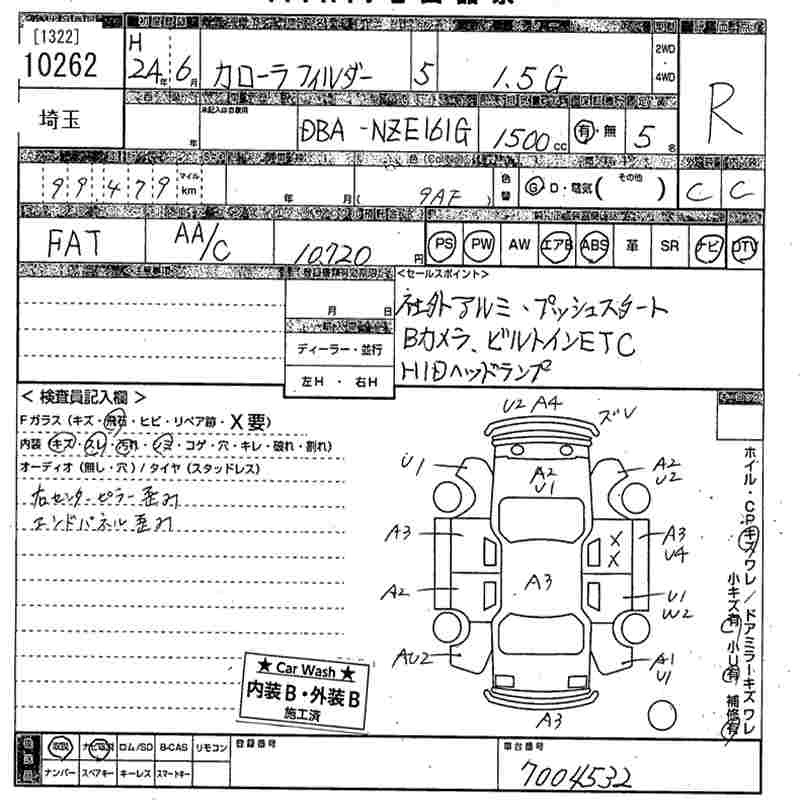 [1322]
10262
H
24年 6月
カローラ フィルダー
5
1.5G
2WD
4WD
R
埼玉
年
DBA - NZE161G
1500 cc
有・無
5名
99479
マイル
km
年 月
( 9AF )
色替
G・D・電気( その他 )
C
C
FAT
AA/C
10720円
PS
PW
AW
エアB
ABS
革
SR
ナビ
DTV
月 日
ディーラー・並行
左H ・ 右H
<セールスポイント>
社外アルミ、プッシュスタート
Bカメラ、ビルトインETC
HIDヘッドランプ
< 検査員記入欄 >
Fガラス(キズ・飛石・ヒビ・リペア跡・X要)
内装(キズ・スレ・汚れ・シミ・コゲ・穴・キレ・破れ・割れ)
オーディオ(無し・穴)/タイヤ(スタッドレス)
右センターピラー歪り
エンドパネル歪り
U2 A4
ズレ
U1
A2
U1
A2
U2
A3
X
X
A3
U4
A2
A3
U1
W2
AU2
A1
U1
A3
ホイル・CPキズワレ/ドアミラーキズワレ
小キズ有 小U有 補修有
★ Car Wash ★
内装B・外装B
施工済
取説
ナビ取説
ロム/SD
B-CAS
リモコン
ナンバー
スペアキー
キーレス
スマートキー
登録番号
車台番号
7004532